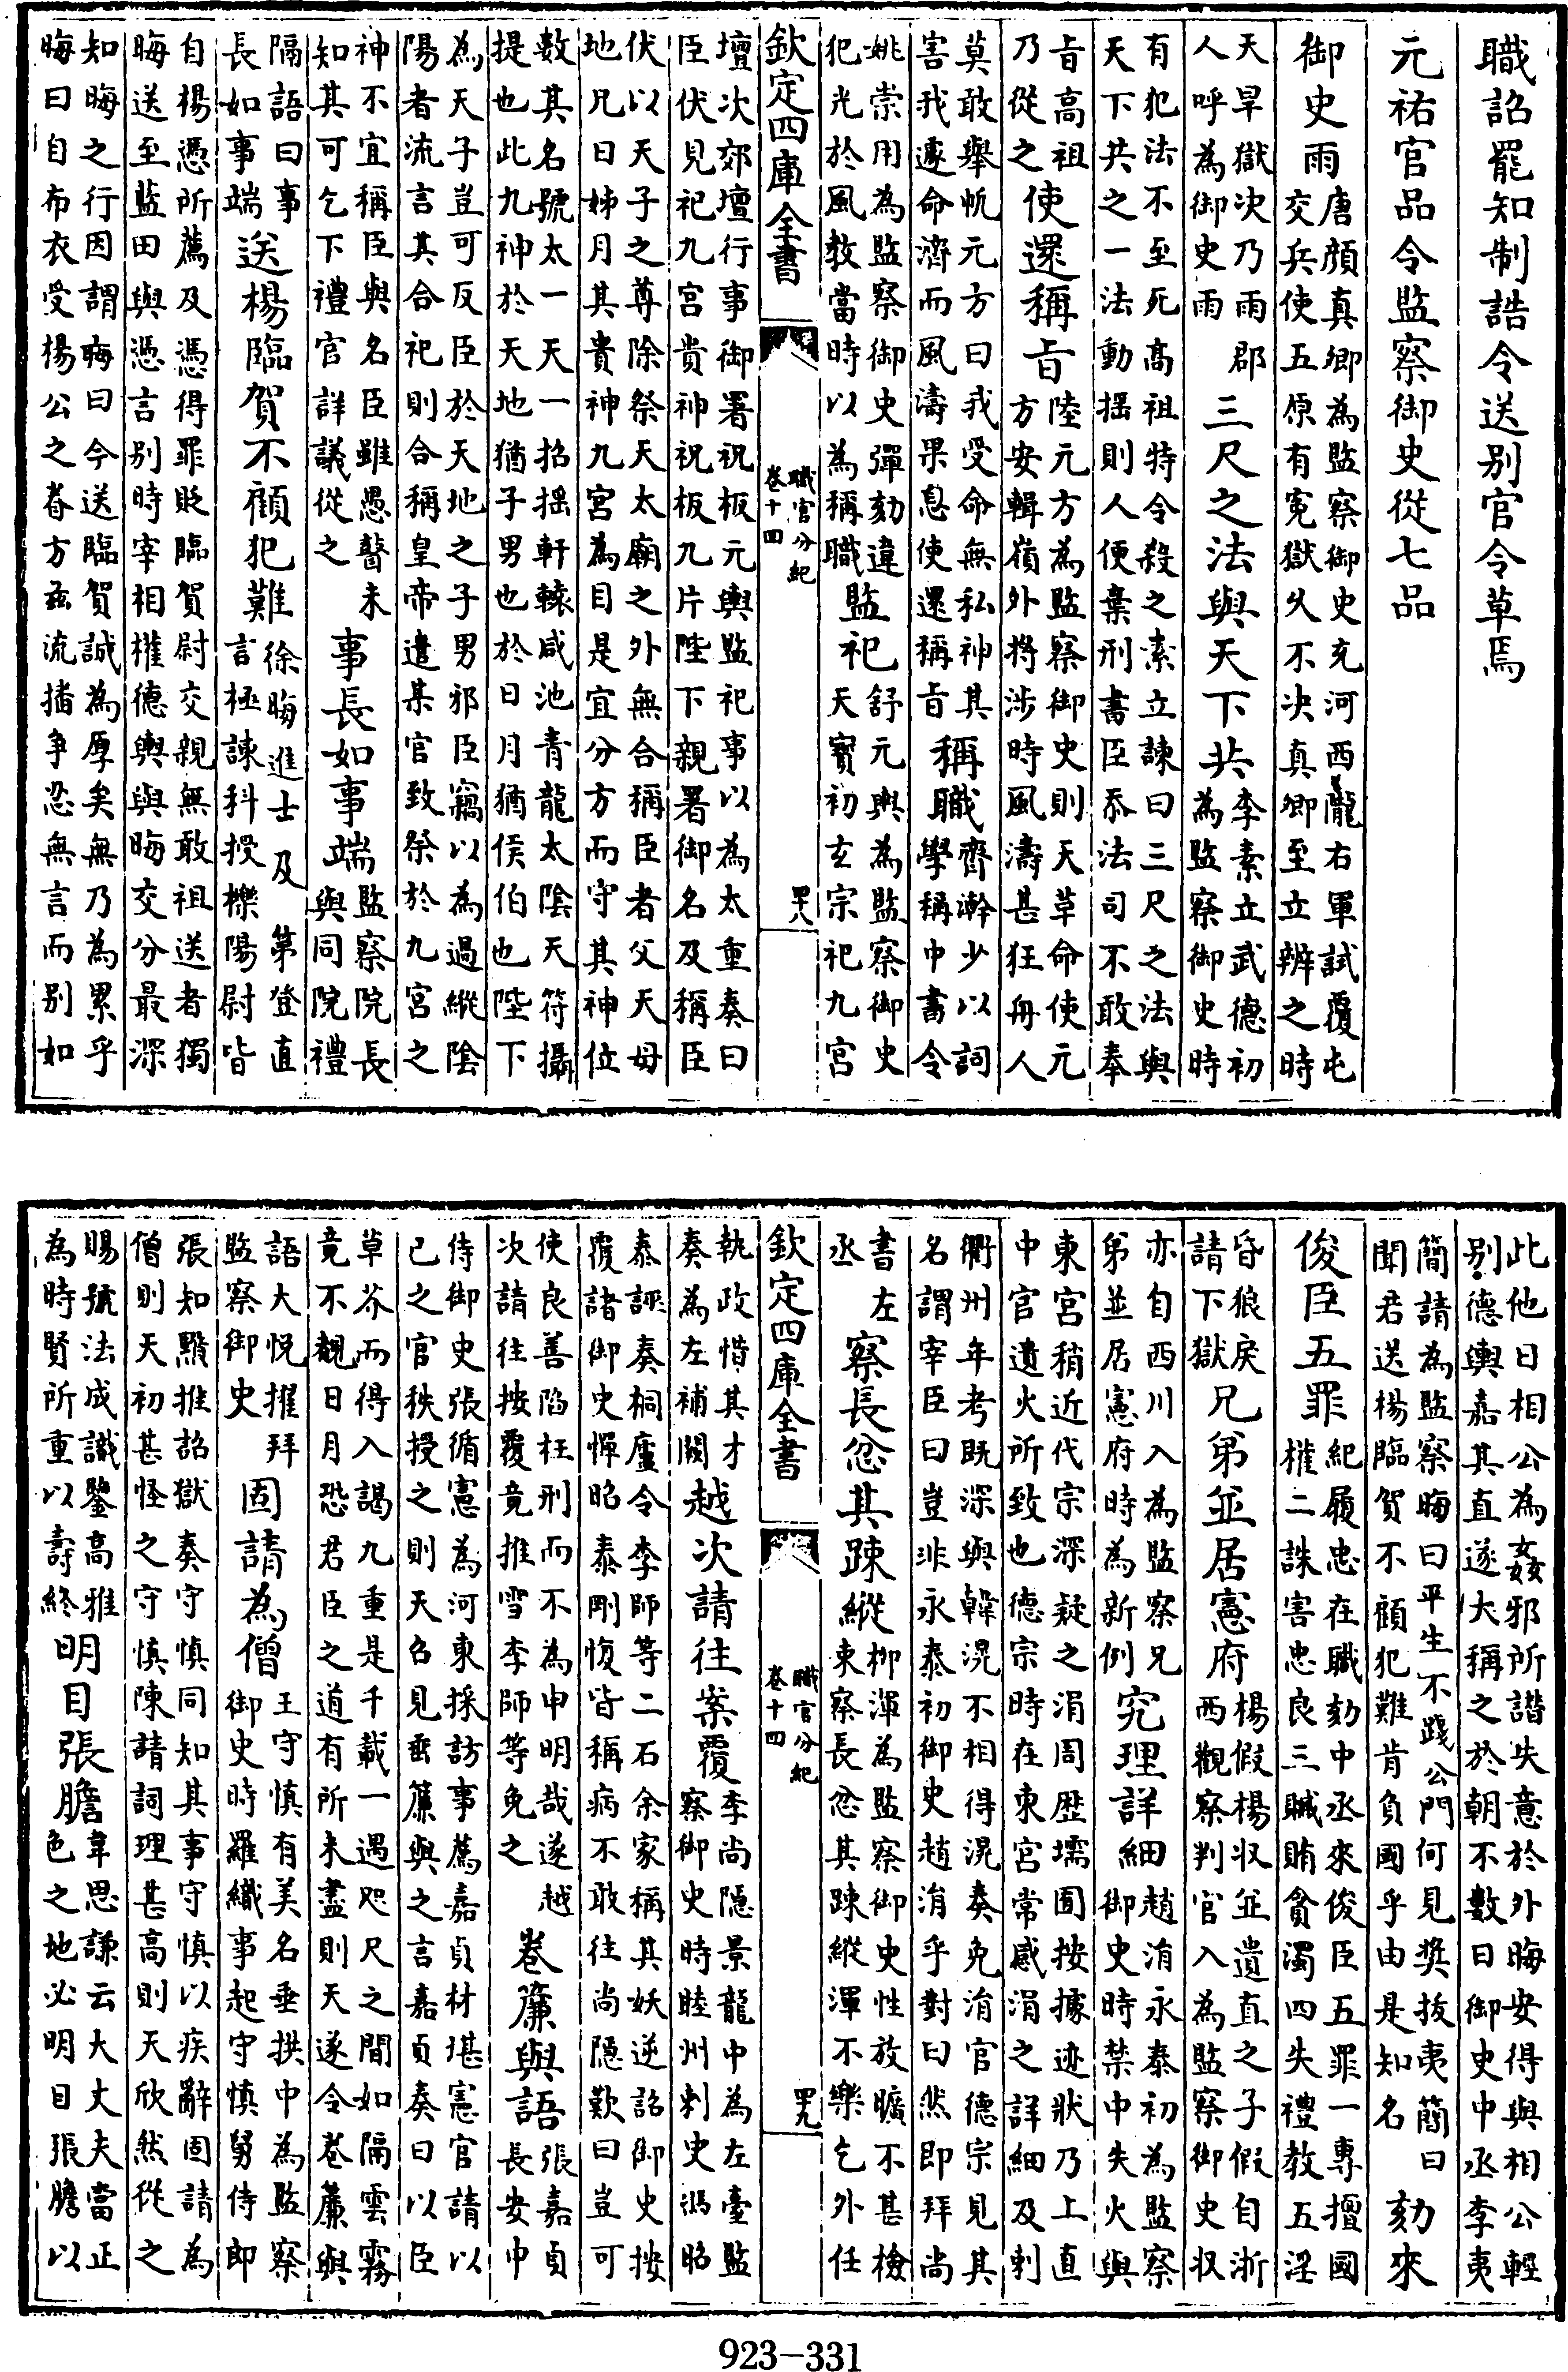 職詔罷知制誥令送别官令草焉
元祐官品令監察御史從七品
御史雨唐顔真卿為監察御史充河西隴右軍試覆屯
交兵使五原有寃獄乆不决真卿至立辨之時
天旱獄决乃雨郡
人呼為御史雨三尺之法與天下共李素立武德初
為監察御史時
有犯法不至死髙祖特令殺之素立諫曰三尺之法與
天下共之一法動揺則人便棄刑書臣忝法司不敢奉
旨高祖
乃從之使還稱旨陸元方為監察御史則天革命使元
方安輯嶺外将涉時風濤甚狂舟人
莫敢舉帆元方曰我受命無私神其
害我遽命濟而風濤果息使還稱旨稱職齊澣少以詞
學稱中書令
姚崇用為監察御史彈劾違
犯光於風教當時以為稱職監祀舒元輿為監察御史
天寳初玄宗祀九宫
欽定四庫全書
職官分紀
卷十四
四十八
壇次郊壇行事御署祝板元輿監祀事以為太重奏曰
臣伏見祀九宫貴神祝板九片陛下親署御名及稱臣
伏以天子之尊除祭天太廟之外無合稱臣者父天母
地兄日姊月其貴神九宫為目是宜分方而守其神位
數其名號太一天一招揺軒轅咸池青龍太陰天符攝
提也此九神於天地猶子男也於日月猶侯伯也陛下
為天子豈可反臣於天地之子男邪臣竊以為過縱陰
陽者流言其合祀則合稱皇帝遣某官致祭於九宫之
神不宜稱臣與名臣雖愚瞽未
知其可乞下禮官詳議從之事長如事端監察院長
與同院禮
隔語曰事
長如事端送楊臨賀不顧犯難徐晦進士及第登直
言極諫科授櫟陽尉皆
自楊憑所薦及憑得罪貶臨賀尉交親無敢祖送者獨
晦送至藍田與憑言别時宰相權德輿與晦交分最深
知晦之行因謂晦曰今送臨賀誠為厚矣無乃為累乎
晦曰自布衣受楊公之眷方兹流播争忍無言而别如
此他日相公為姦邪所譖失意於外晦安得與相公輕
别德輿嘉其直遂大稱之於朝不數日御史中丞李夷
簡請為監察晦曰平生不踐公門何見奬拔夷簡曰
聞君送楊臨賀不顧犯難肯負國乎由是知名劾來
俊臣五罪紀履忠在職劾中丞來俊臣五罪一專擅國
權二誅害忠良三贓賄貪濁四失禮教五淫
昏狼戾
請下獄兄弟並居憲府楊假楊収並遺直之子假自浙
西觀察判官入為監察御史収
亦自西川入為監察兄
弟並居憲府時為新例究理詳細趙涓永泰初為監察
御史時禁中失火與
東宮稍近代宗深疑之涓周歴壖囿按據迹狀乃上直
中官遺火所致也德宗時在東宮常感涓之詳細及刺
衢州年考既深與韓滉不相得滉奏免涓官德宗見其
名謂宰臣曰豈非永泰初御史趙涓乎對曰然即拜尚
書左
丞察長忿其疎縱柳渾為監察御史性放曠不甚檢
束察長忿其疎縱渾不樂乞外任
欽定四庫全書
職官分紀
卷十四
四十九
執政惜其才
奏為左補闕越次請往案覆李尚隠景龍中為左臺監
察御史時睦州刺史馮昭
泰誣奏桐廬令李師等二百余家稱其妖逆詔御史按
覆諸御史憚昭泰剛愎皆稱病不敢往尚隠歎曰豈可
使良善陷枉刑而不為申明哉遂越
次請往按覆竟推雪李師等免之卷簾與語張嘉貞
長安中
侍御史張循憲為河東採訪事薦嘉貞材堪憲官請以
己之官秩授之則天召見垂簾與之言嘉貞奏曰以臣
草芥而得入謁九重是千載一遇咫尺之間如隔雲霧
竟不覩日月恐君臣之道有所未盡則天遂令卷簾與
語大悦擢拜
監察御史固請為僧王守慎有美名垂拱中為監察
御史時羅織事起守慎舅侍郎
張知黙推詔獄奏守慎同知其事守慎以疾辭固請為
僧則天初甚怪之守慎陳請詞理甚高則天欣然從之
賜號法成識鑒高雅
為時賢所重以壽終明目張膽韋思謙云大丈夫當正
色之地必明目張膽以
923-331